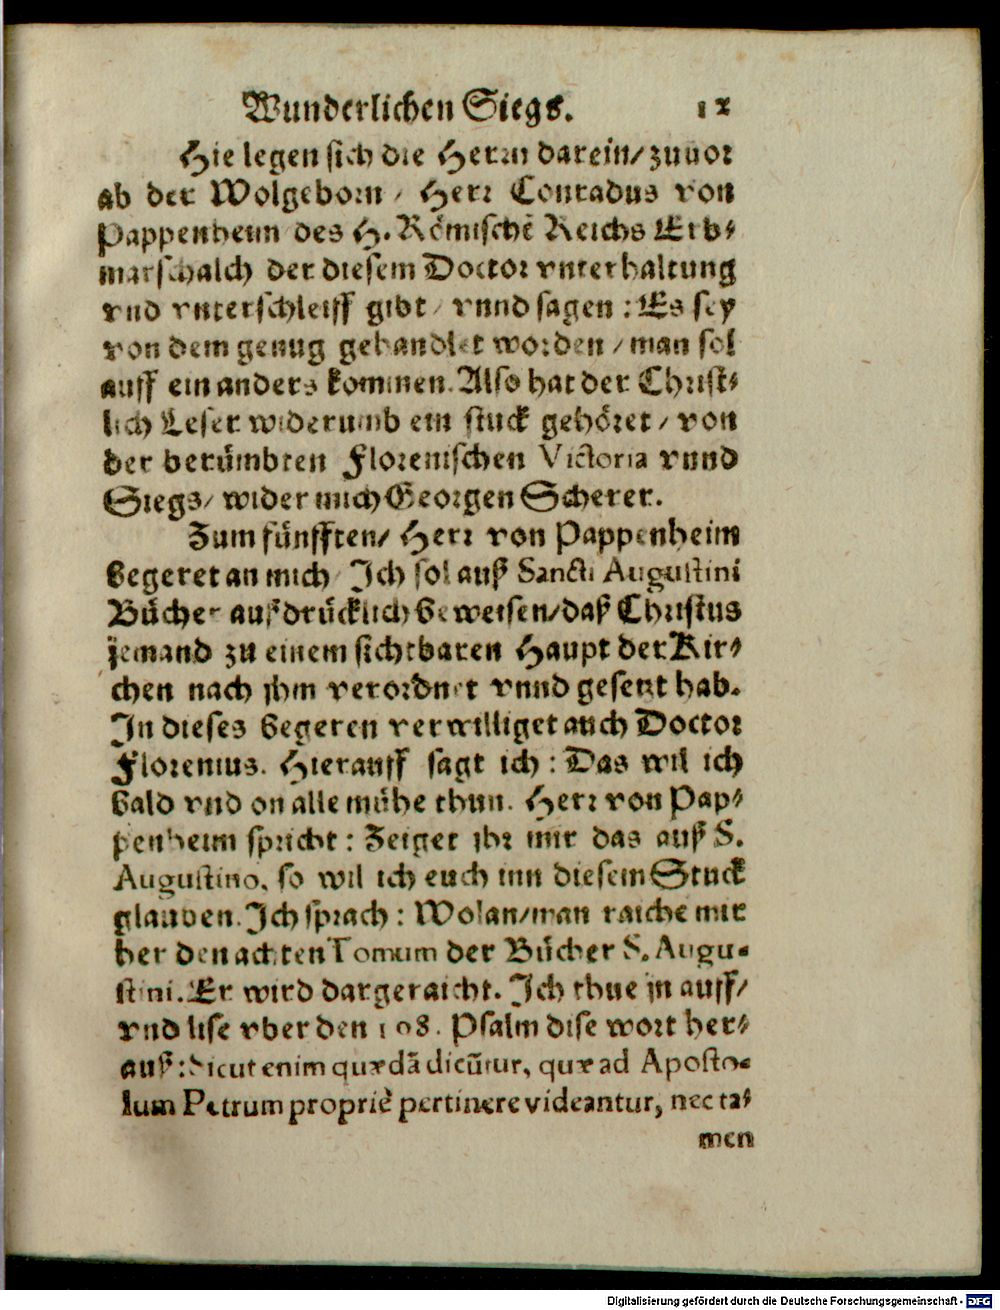 Wunderlichen Siegs. 12
Hie legen sich die Herrn darein/ zuuor
ab der Wolgeborn / Herr Conradus von
Pappenheim des H. Römischē Reichs Erb⸗
marschalch der diesem Doctor vnterhaltung
vnd vnterschleiff gibt / vnnd sagen : Es sey
von dem genug gehandlet worden / man sol
auff ein anders kommen. Also hat der Christ⸗
lich Leser widerumb ein stuck gehöret / von
der berümbten Florenischen Victoria vnnd
Siegs/ wider mich Georgen Scherer.
Zum fünfften/ Herr von Pappenheim
begeret an mich / Ich sol auß Sancti Augustini
Bücher außdrücklich beweisen/ daß Christus
jemand zu einem sichtbaren Haupt der Kir⸗
chen nach jhm verordnet vnnd gesetzt hab.
In dieses begeren verwilliget auch Doctor
Florenius. Hierauff sagt ich : Das wil ich
bald vnd on alle mühe thun. Herr von Pap⸗
penheim spricht : Zeiget jhr mir das auß S.
Augustino, so wil ich euch inn diesem Stuck
glauben. Ich sprach : Wolan/ man raiche mir
her den achten Tomum der Bücher S. Augu⸗
stini. Er wird dargeraicht. Ich thue jn auff/
vnd lise vber den 108. Psalm dise wort her⸗
auß : Sicut enim quædā dicūtur, quæ ad Aposto⸗
lum Petrum propriè pertinere videantur, nec ta⸗
men
Digitalisierung gefördert durch die Deutsche Forschungsgemeinschaft - DFG